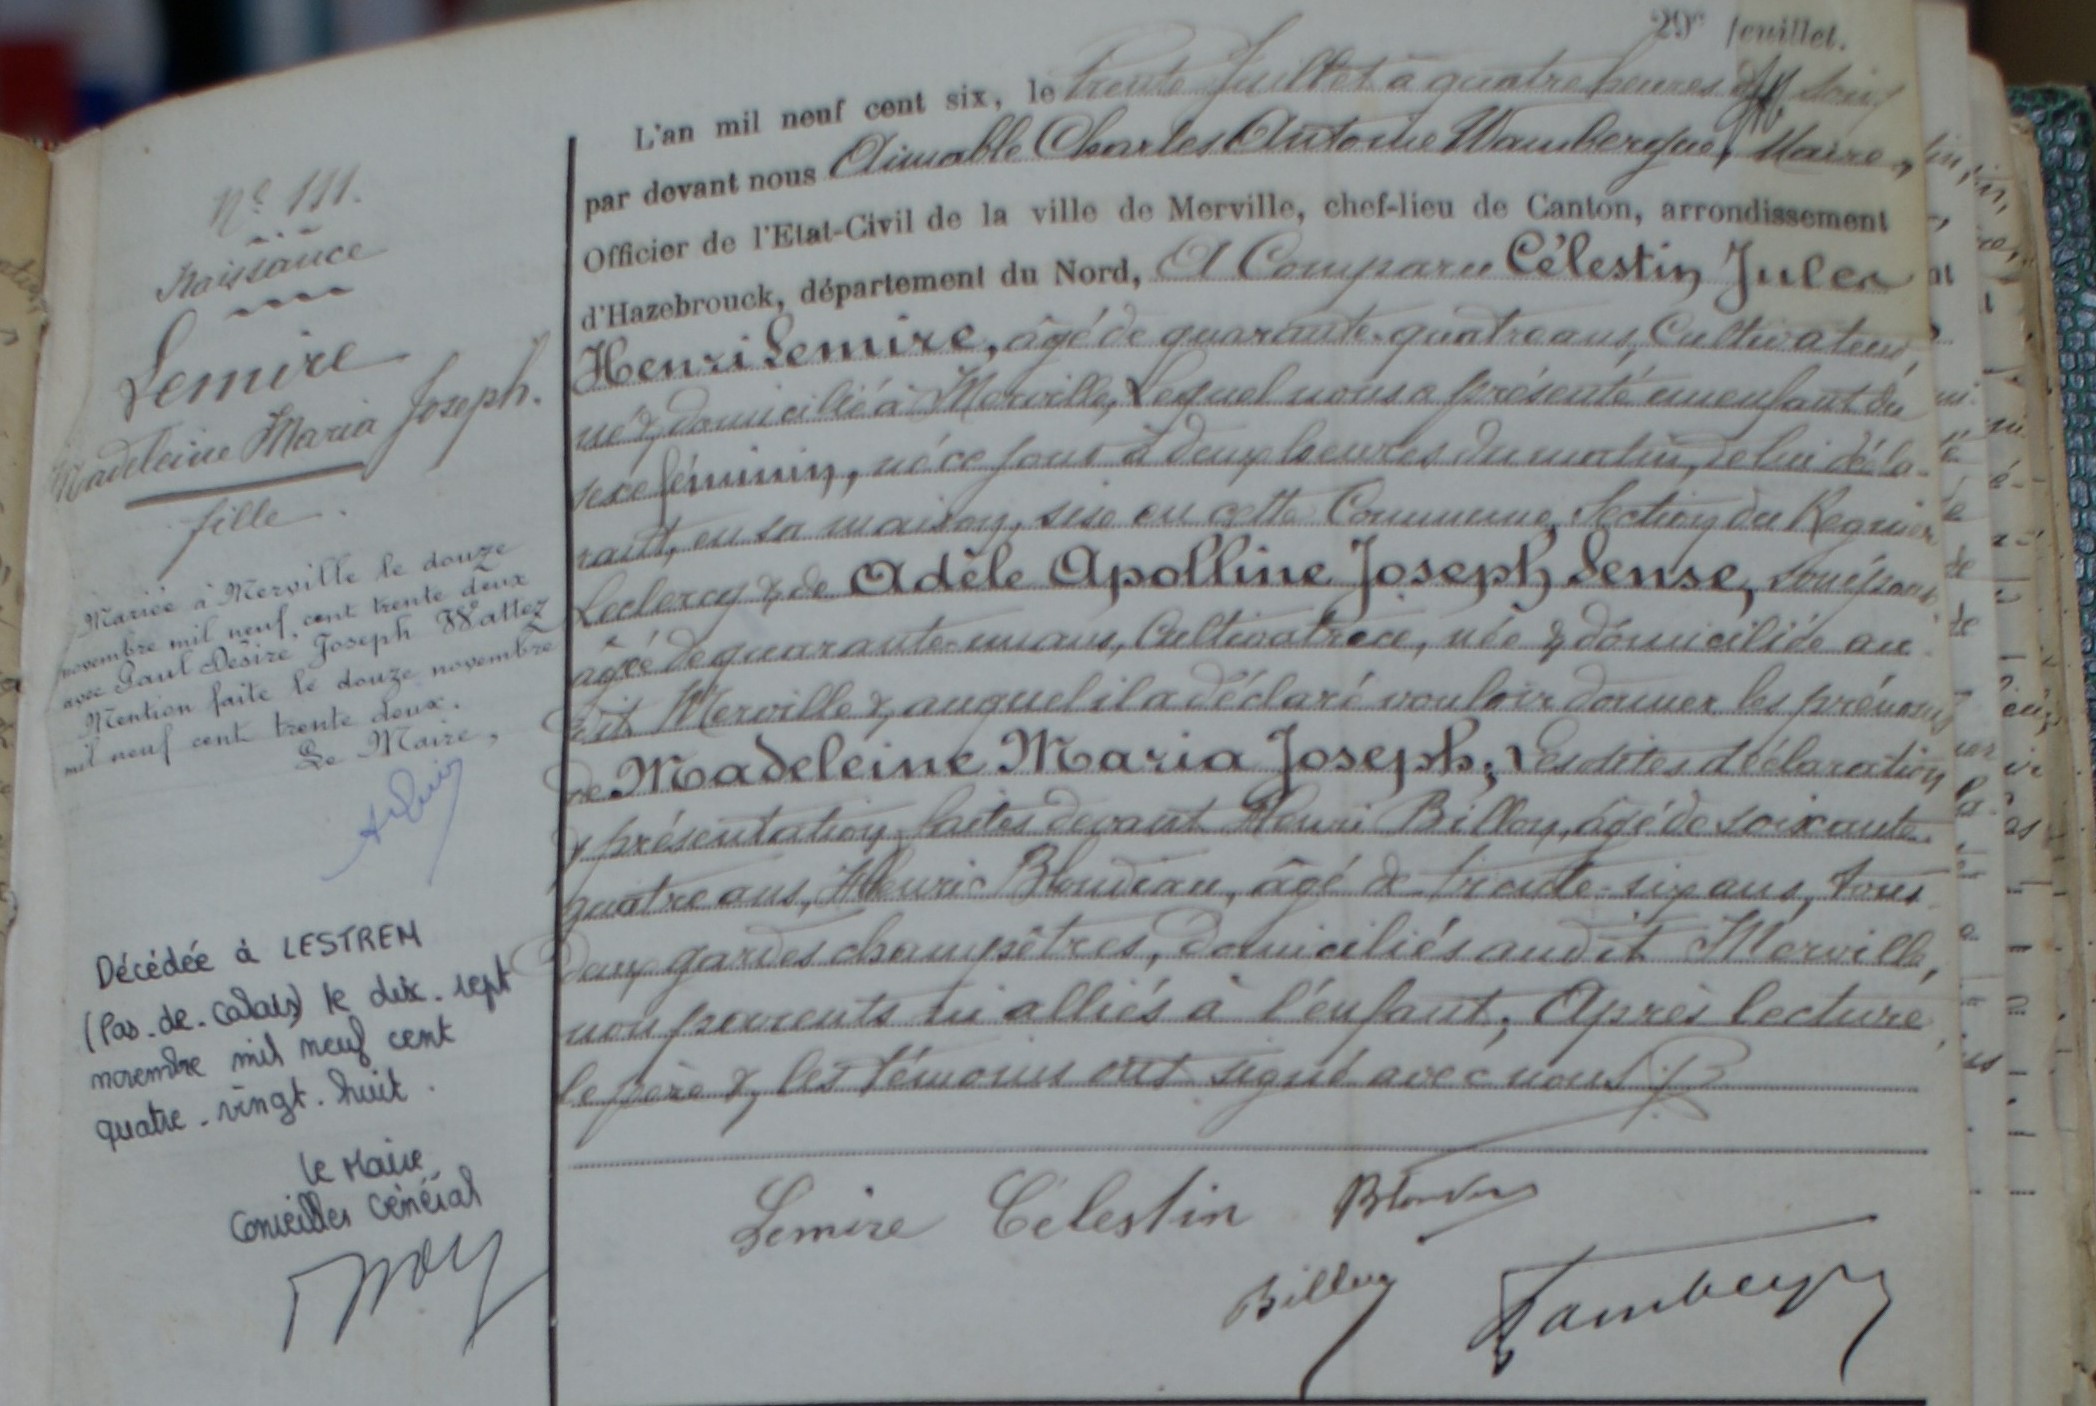 29e feuillet.
Nº 111.
Naissance
Lemire
Madeleine Maria Joseph.
fille.
Mariée à Merville le douze
novembre mil neuf cent trente deux
avec Paul Désiré Joseph Wattez
Mention faite le douze novembre
mil neuf cent trente deux.
Le Maire,
Décédée à LESTREM
(Pas-de-Calais) le dix-sept
novembre mil neuf cent
quatre-vingt-huit.
Le Maire
Conseiller Général
L'an mil neuf cent six, le trente Juillet à quatre heures du soir,
par devant nous Aimable Charles Antoine Wambergue, Maire,
Officier de l'Etat-Civil de la ville de Merville, chef-lieu de Canton, arrondissement
d'Hazebrouck, département du Nord, A Comparu Célestin Jules
Henri Lemire, âgé de quarante-quatre ans, Cultivateur,
né & domicilié à Merville, Lequel nous a présenté un enfant du
sexe féminin, né ce jour à deux heures du matin, de lui décla-
rant, en sa maison, sise en cette Commune, Section du
Leclercq & de Adèle Apolline Joseph Lense, son épouse
âgée de quarante-un ans, Cultivatrice, née & domiciliée au
dit Merville & auquel il a déclaré vouloir donner les prénoms
de Madeleine Maria Joseph; Lesdites déclaration
& présentation faites devant Henri Billoy, âgé de soixante-
quatre ans, Henri Blondeau, âgé de trente-six ans, tous
deux gardes champêtres, domiciliés audit Merville,
non parents ni alliés à l'enfant; Après lecture,
le père & les témoins ont signé avec nous.
Lemire Célestin Blondeau
Billoy Wambergue